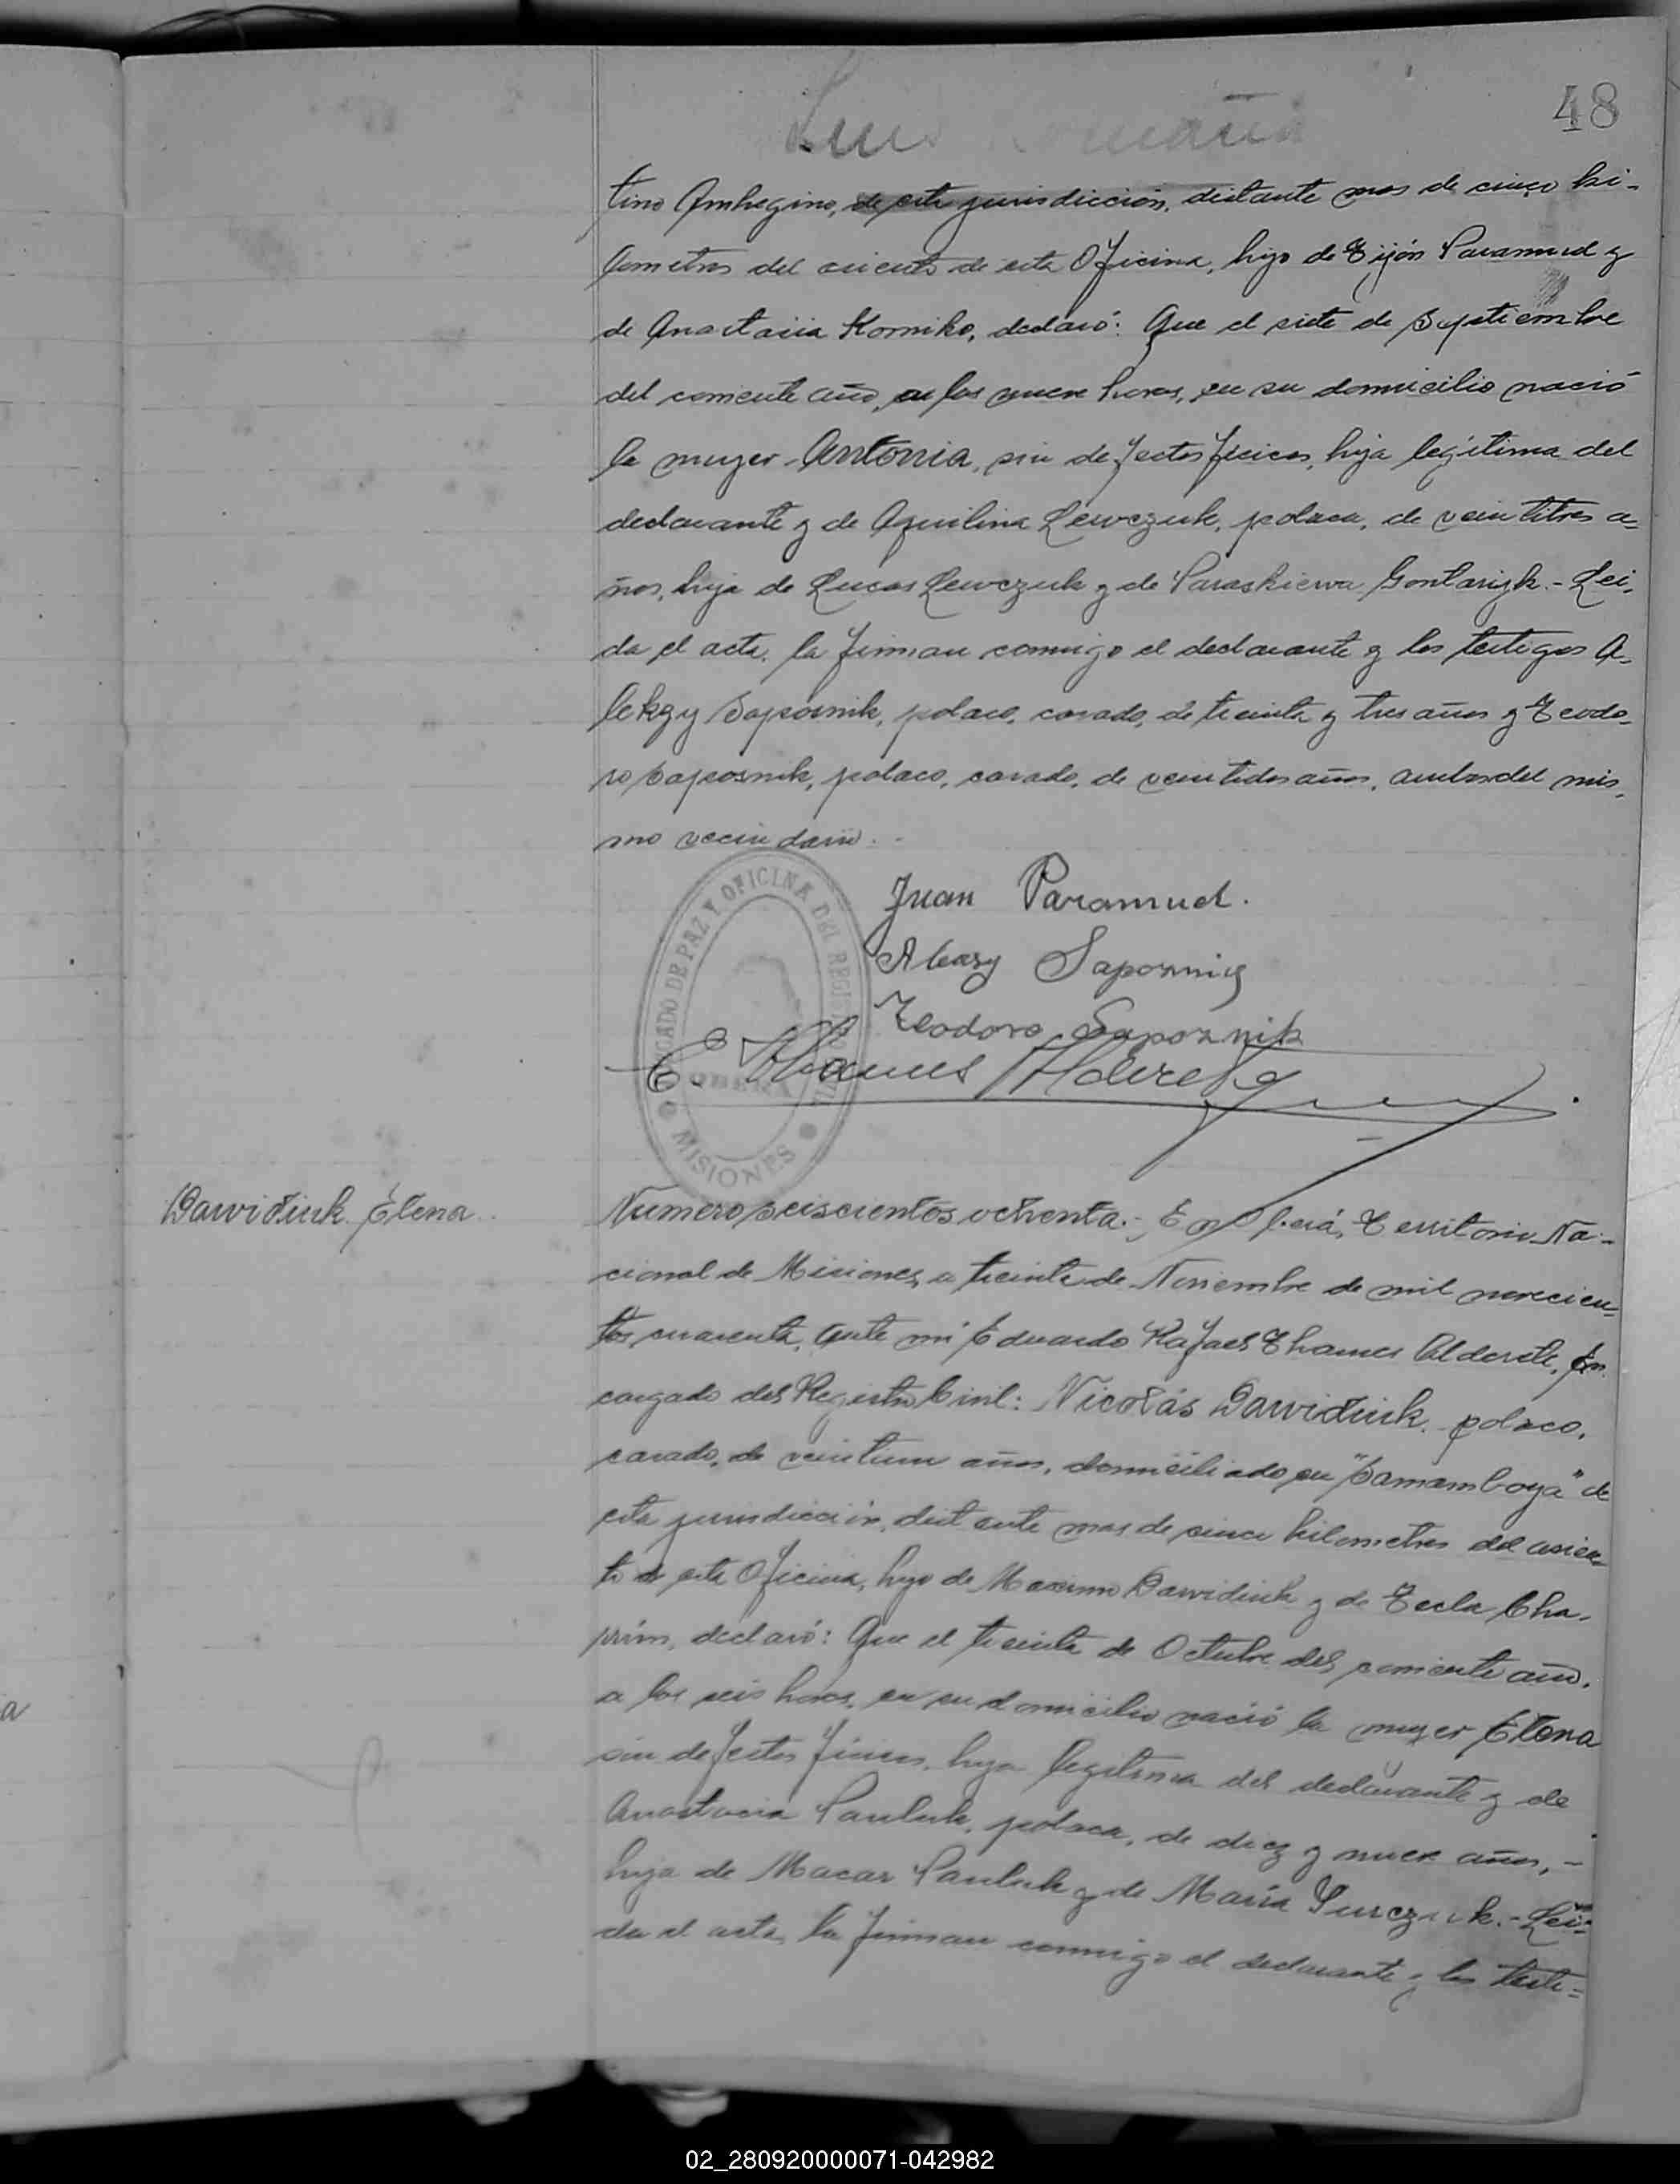 48
tino Ambegino, de esta jurisdicción, distante mas de cinco ki-
lometros del asiento de esta Oficina, hijo de Tijón Paramud y
de Anastasia Korniko, declaró: Que el siete de Septiembre
del corriente año, a las nueve horas, en su domicilio nació
la mujer Antonia, sin defectos físicos, hija legítima del
declarante y de Aquilina Lewczuk, polaca, de veintitres a-
ños, hija de Lucas Lewczuk y de Paraskiewa Gontarizk.- Lei-
da el acta, la firman conmigo el declarante y los testigos A-
lekzy Sapoznik, polaco, casado, de treinta y tres años y Teodo-
ro Sapoznik, polaco, casado, de veintidos años, ambos del mis-
mo vecindario.-
Juan Paramud.
Alexy Sapoznik
Teodoro Sapoznik
E. Thames Alderete
JUZGADO DE PAZ Y OFICINA DEL REGISTRO CIVIL
OBERÁ
MISIONES
Dawidiuk Elena
Número seiscientos ochenta.- En Oberá, Territorio Na-
cional de Misiones, a treinta de Noviembre de mil novecien-
tos cuarenta, ante mí Eduardo Rafael Thames Alderete, En-
cargado del Registro Civil: Nicolás Dawidiuk, polaco,
casado, de veintiun años, domiciliado en "Samambaya" de
esta jurisdicción, distante mas de cinco kilometros del asien-
to de esta Oficina, hijo de Maximo Dawidiuk y de Tecla Cha-
prim, declaró: Que el treinta de Octubre del corriente año,
a las seis horas, en su domicilio nació la mujer Elena
sin defectos físicos, hija legítima del declarante y de
Anastacia Pauluk, polaca, de diez y nueve años,-
hija de Macar Pauluk y de María Surczuk.- Lei-
da el acta, la firman conmigo el declarante y los testi-
a
02_280920000071-042982